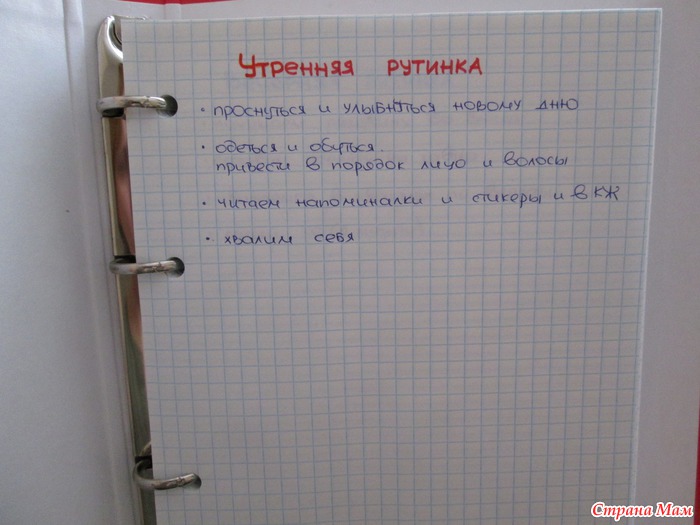 Утренняя рутинка
• проснуться и улыбнуться новому дню
• одеться и обуться.
привести в порядок лицо и волосы
• читаем напоминалки и стикеры и в КЖ
• хвалим себя
Страна Мам